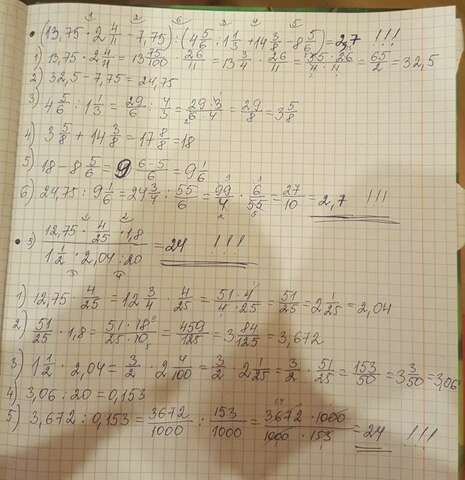 • (13,75 · 2 4/11 - 7,75) : (4 5/6 : 1 1/3 + 14 3/8 - 8 5/6) = 2,7 !!!
1) 13,75 · 2 4/11 = 13 75/100 · 26/11 = 13 3/4 · 26/11 = 55·26/4·11 = 65/2 = 32,5
2) 32,5 - 7,75 = 24,75
3) 4 5/6 : 1 1/3 = 29/6 : 4/3 = 29·3/6·4 = 29/8 = 3 5/8
4) 3 5/8 + 14 3/8 = 17 8/8 = 18
5) 18 - 8 5/6 = 9 6-5/6 = 9 1/6
6) 24,75 : 9 1/6 = 24 3/4 : 55/6 = 99/4 · 6/55 = 27/10 = 2,7 !!!
• 3) 12,75 · 4/25 · 1,8 / 1 1/2 · 2,04 : 20 = 24 !!!
1) 12,75 · 4/25 = 12 3/4 · 4/25 = 51·4/4·25 = 51/25 = 2 1/25 = 2,04
2) 51/25 · 1,8 = 51·18/25·10 = 459/125 = 3 84/125 = 3,672
3) 1 1/2 · 2,04 = 3/2 · 2 4/100 = 3/2 · 2 1/25 = 3/2 · 51/25 = 153/50 = 3 3/50 = 3,06
4) 3,06 : 20 = 0,153
5) 3,672 : 0,153 = 3672/1000 : 153/1000 = 3672·1000/1000·153 = 24 !!!